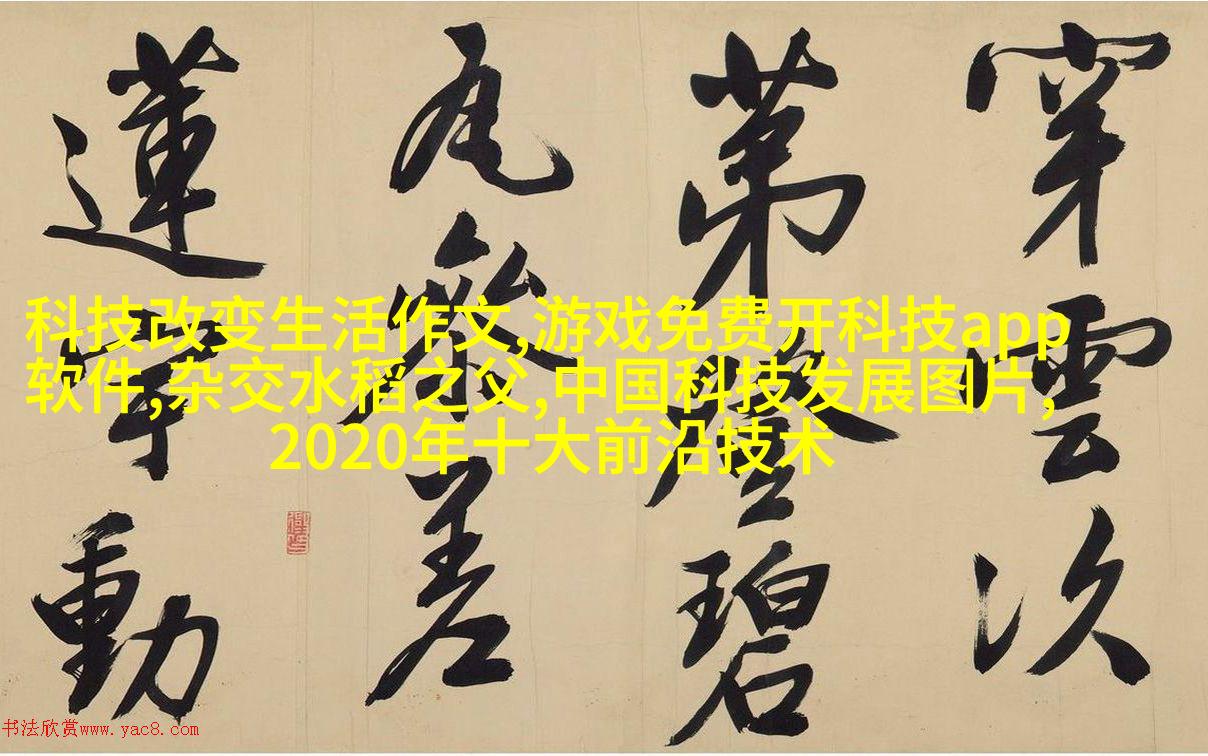 穿雲次
第登碧
瓦參差
蓮宇動
科技改变生活作文,游戏免费开科技app
软件,杂交水稻之父,中国科技发展图片,
2020年十大前沿技术
书法欣赏www.yac8.com